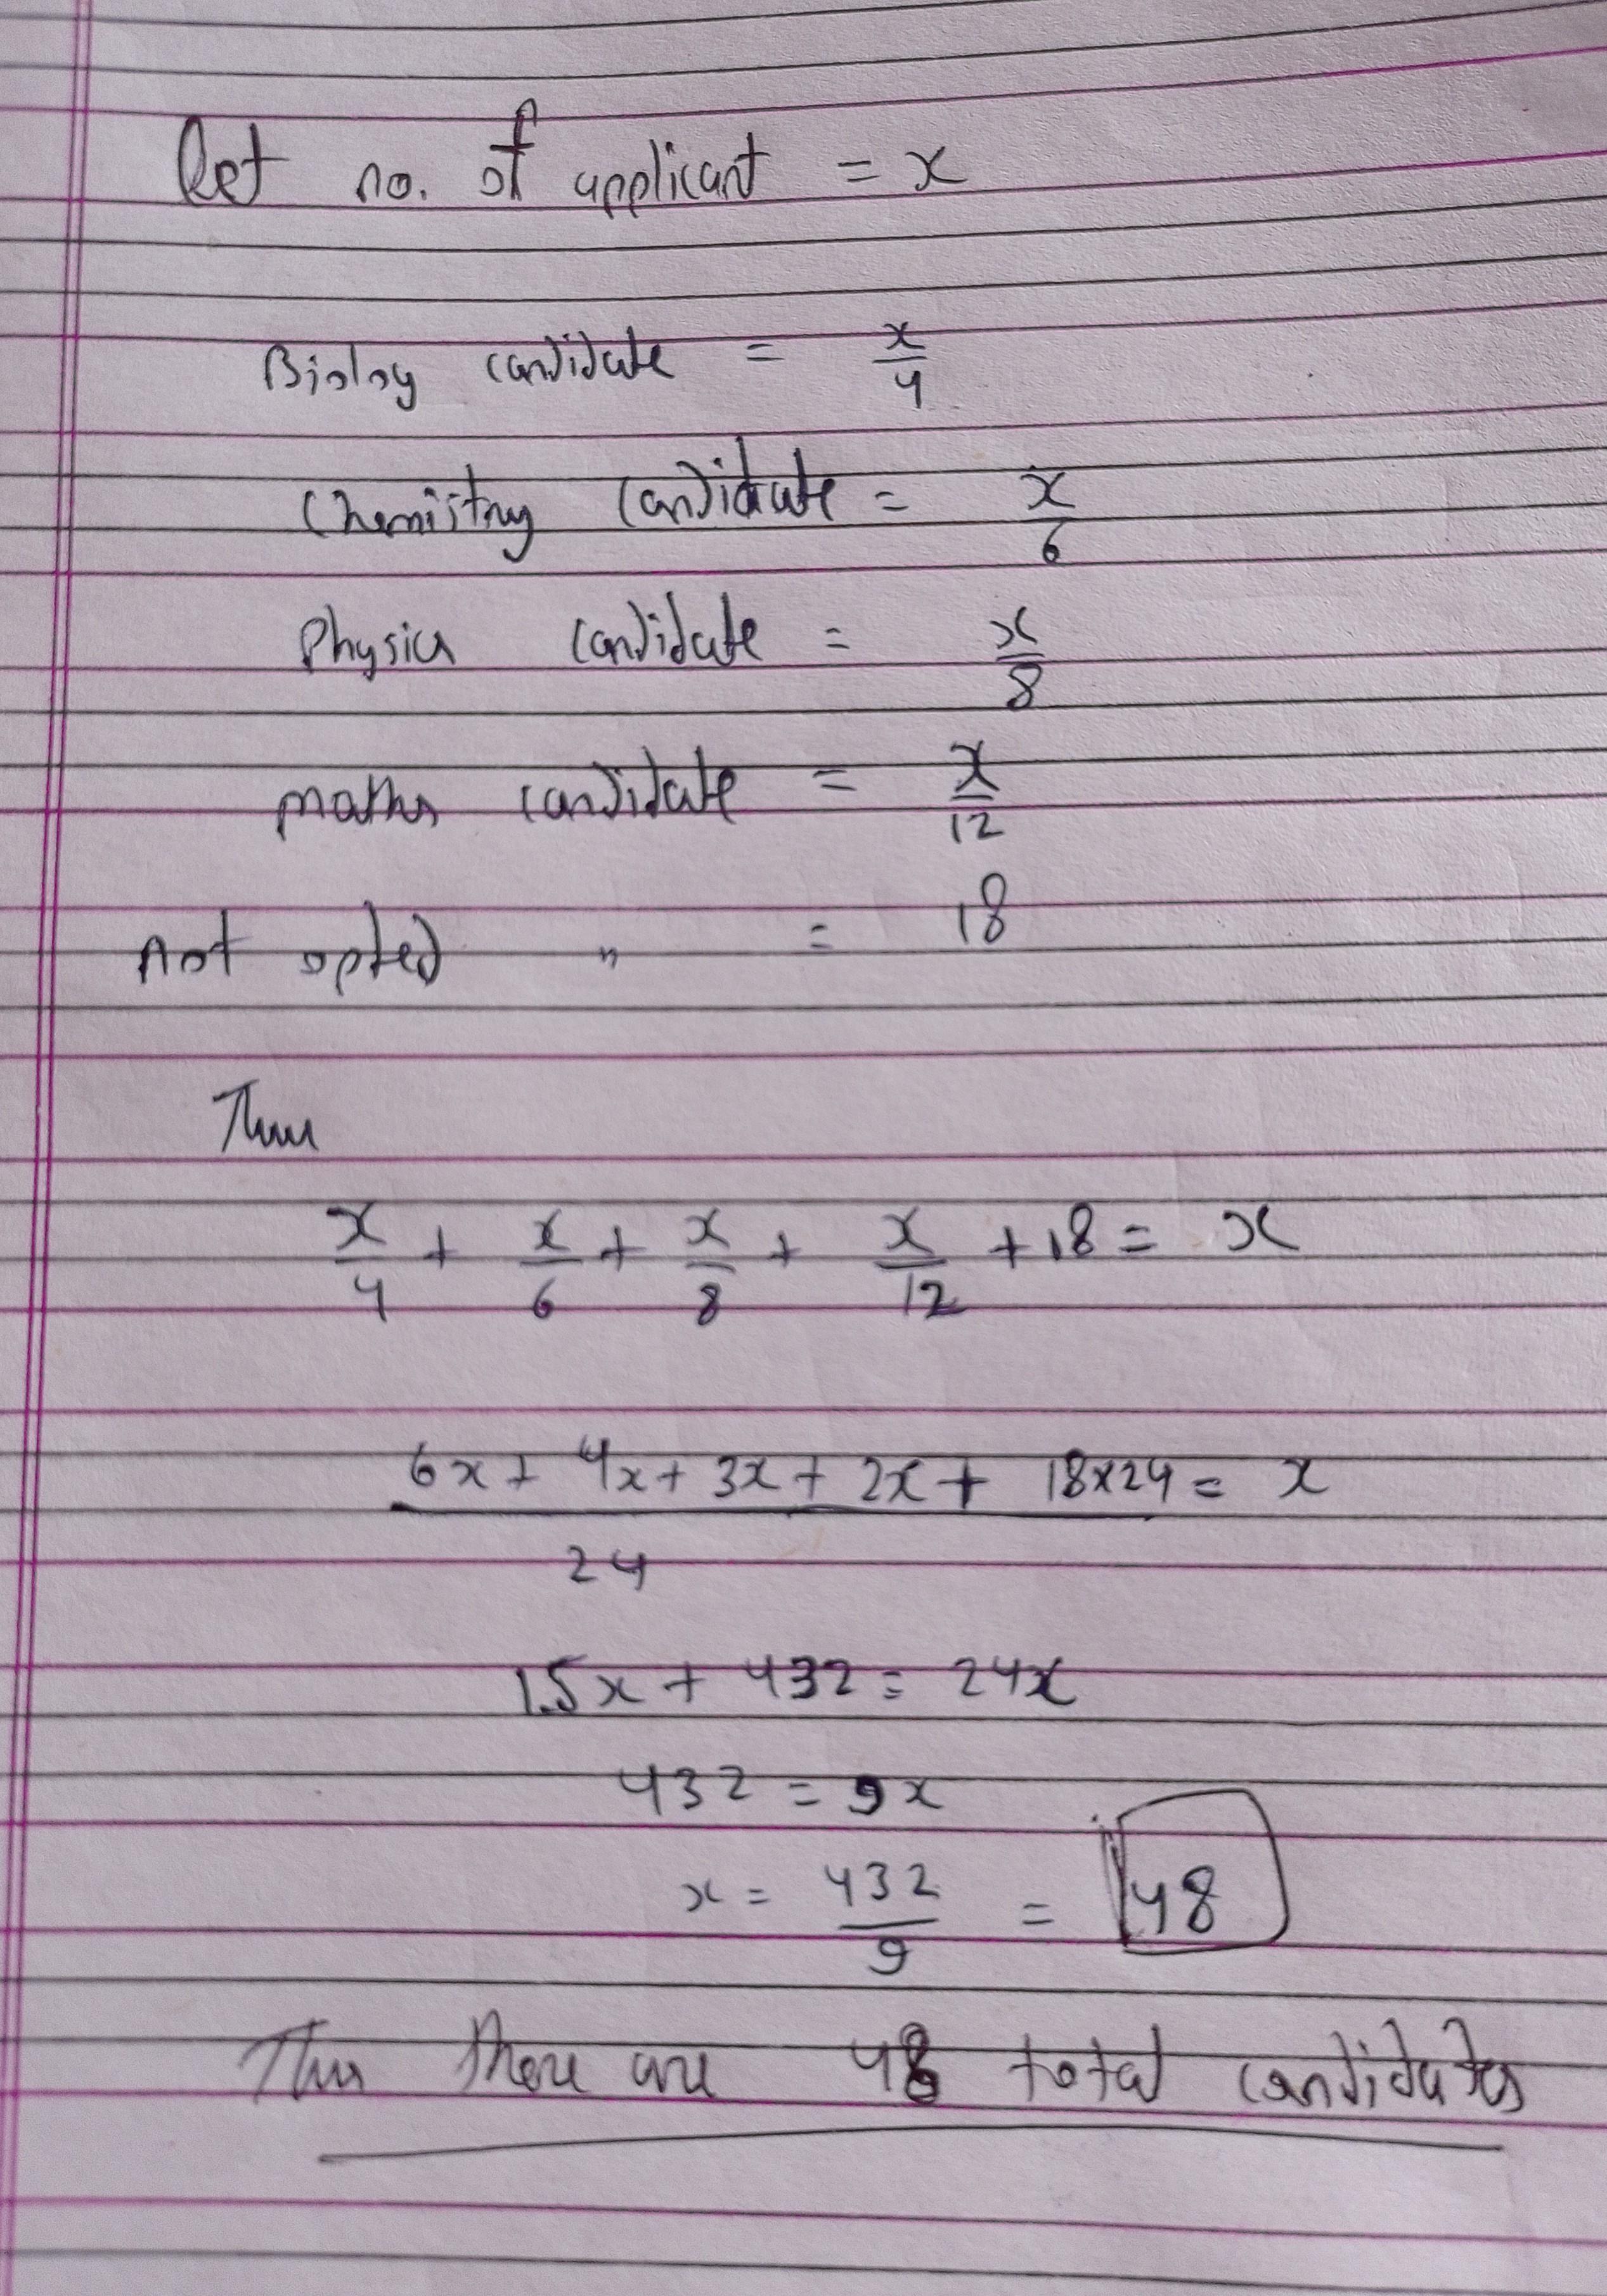 Let no. of applicant = x
Bioloy candidate = x/4
Chemistry candidate = x/6
Physics candidate = x/8
maths candidate = x/12
not opted " = 18
Thus
x/4 + x/6 + x/8 + x/12 + 18 = x
6x + 4x + 3x + 2x + 18x24 = x
24
15x + 432 = 24x
432 = 9x
x = 432/9 = 48
Thus there are 48 total candidates